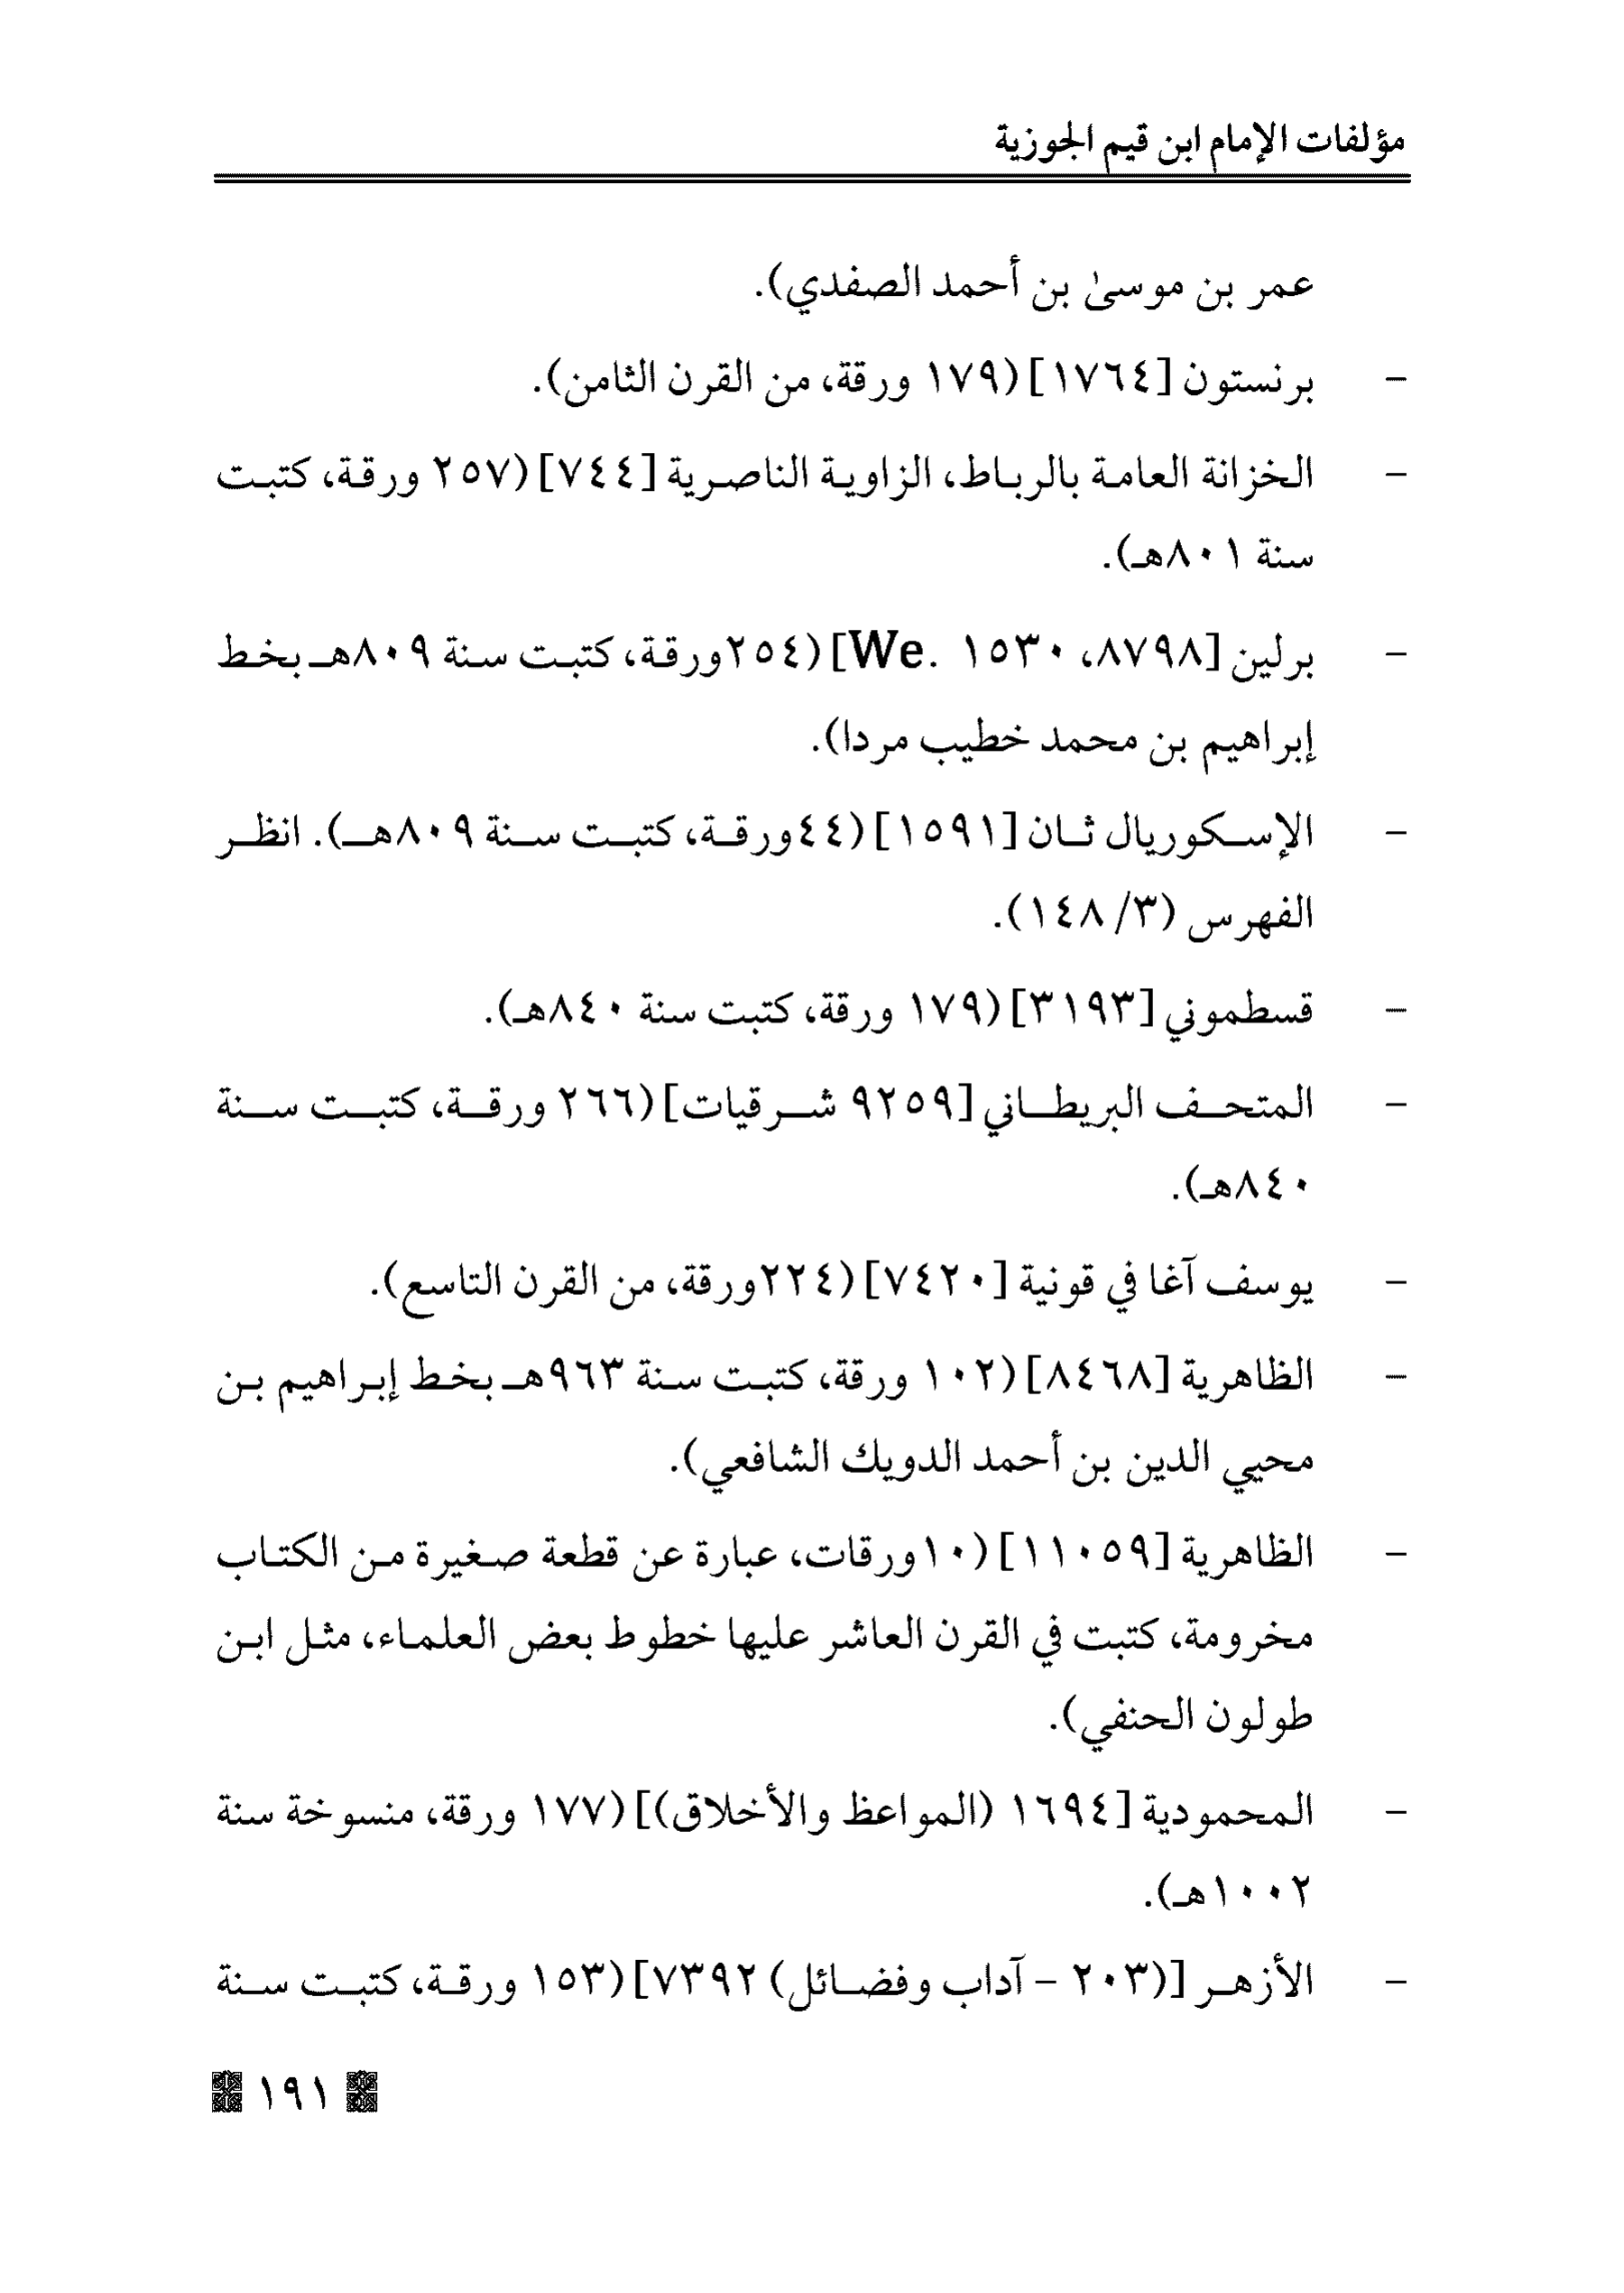 مؤلفات الإمام ابن قيم الجوزية
عمر بن موسىٰ بن أحمد الصفدي).
- برنستون [١٧٦٤] (١٧٩ ورقة، من القرن الثامن).
- الخزانة العامة بالرباط، الزاوية الناصرية [٧٤٤] (٢٥٧ ورقة، كتبت
سنة ٨٠١هـ).
- برلين [٨٧٩٨، ١٥٣٠ We.] (٢٥٤ورقة، كتبت سنة ٨٠٩هـ بخط
إبراهيم بن محمد خطيب مردا).
- الإسكوريال ثان [١٥٩١] (٤٤ورقة، كتبت سنة ٨٠٩هـ). انظر
الفهرس (٣/ ١٤٨).
- قسطموني [٣١٩٣] (١٧٩ ورقة، كتبت سنة ٨٤٠هـ).
- المتحف البريطاني [٩٢٥٩ شرقيات] (٢٦٦ ورقة، كتبت سنة
٨٤٠هـ).
- يوسف آغا في قونية [٧٤٢٠] (٢٢٤ورقة، من القرن التاسع).
- الظاهرية [٨٤٦٨] (١٠٢ ورقة، كتبت سنة ٩٦٣هـ بخط إبراهيم بن
محيي الدين بن أحمد الدويك الشافعي).
- الظاهرية [١١٠٥٩] (١٠ورقات، عبارة عن قطعة صغيرة من الكتاب
مخرومة، كتبت في القرن العاشر عليها خطوط بعض العلماء، مثل ابن
طولون الحنفي).
- المحمودية [١٦٩٤ (المواعظ والأخلاق)] (١٧٧ ورقة، منسوخة سنة
١٠٠٢هـ).
- الأزهر [(٢٠٣ - آداب وفضائل) ٧٣٩٢] (١٥٣ ورقة، كتبت سنة
١٩١